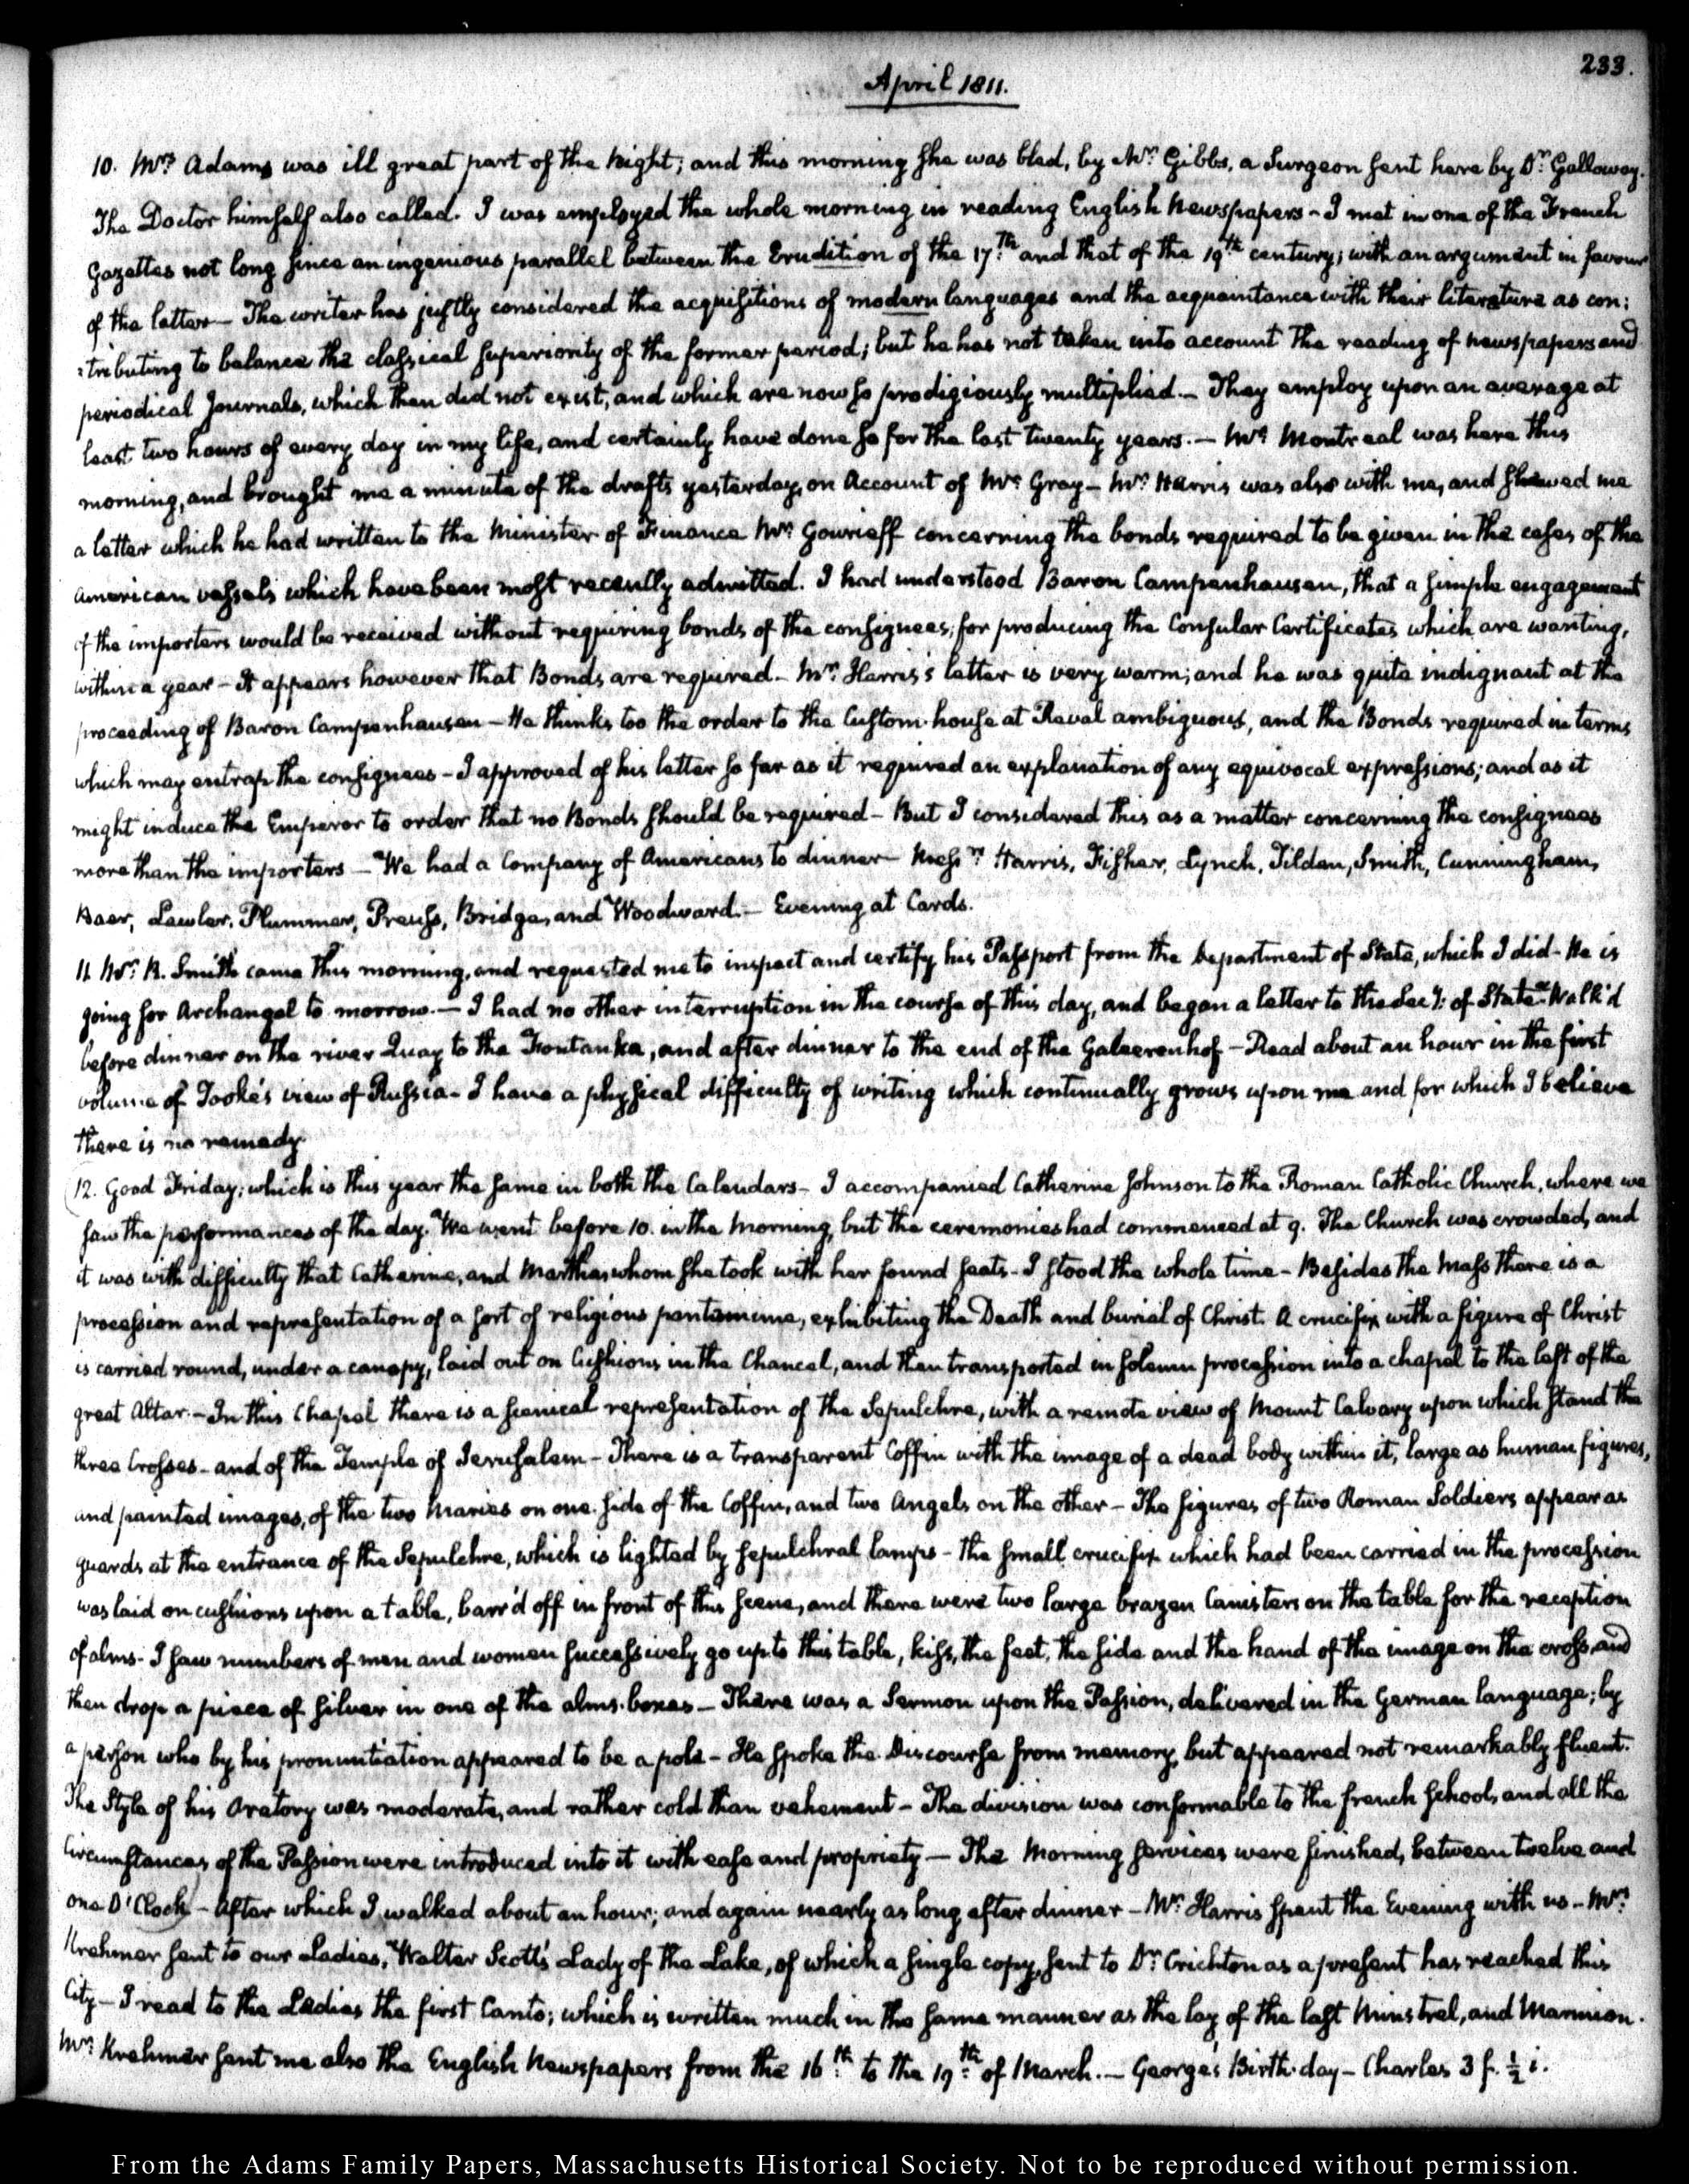 233.
April 1811.
10. Mrs. Adams was ill great part of the Night; and this morning she was bled, by Mr. Gibbs, a Surgeon sent here by Dr. Galloway.
The Doctor himself also called. I was employed the whole morning in reading English Newspapers – I met in one of the French
Gazettes not long since an ingenious parallel between the Erudition of the 17th. and that of the 19th. century; with an argument in favour
of the latter – The writer has justly considered the acquisitions of modern languages and the acquaintance with their literature as con:
:tributing to balance the classical superiority of the former period; but he has not taken into account the reading of newspapers and
periodical Journals, which then did not exist, and which are now so prodigiously multiplied. – They employ upon an average at
least two hours of every day in my life, and certainly have done so for the last twenty years. – Mr. Montreal was here this
morning, and brought me a minute of the drafts yesterday, on Account of Mr. Gray – Mr. Harris was also with me, and shewed me
a letter which he had written to the Minister of Finance Mr. Gourieff concerning the bonds required to be given in the cases of the
American vessels which have been most recently admitted. I had understood Baron Campenhausen, that a simple engagement
of the importers would be received without requiring bonds of the consignees; for producing the Consular Certificates which are wanting,
within a year – It appears however that Bonds are required. – Mr. Harris's letter is very warm; and he was quite indignant at the
proceeding of Baron Campenhausen – He thinks too the order to the Custom-house at Reval ambiguous, and the Bonds required in terms
which may entrap the consignees – I approved of his letter so far as it required an explanation of any equivocal expressions; and as it
might induce the Emperor to order that no Bonds should be required – But I considered this as a matter concerning the consignees
more than the importers – We had a Company of Americans to dinner – Messrs. Harris, Fisher, Lynch, Tilden, Smith, Cunningham,
Baer, Lawler, Plummer, Preuss, Bridge, and Woodward. – Evening at Cards.
11. Mr. R. Smith came this morning, and requested me to inspect and certify his Passport from the Department of State, which I did – He is
going for Archangel to morrow. – I had no other interruption in the course of this day, and began a letter to the Secy: of State – Walk'd
before dinner on the river Quay to the Fontanka, and after dinner to the end of the Galeerenhof – Read about an hour in the first
volume of Tooke's view of Russia – I have a physical difficulty of writing which continually grows upon me and for which I believe
there is no remedy.
12. Good Friday; which is this year the same in both the Calendars – I accompanied Catherine Johnson to the Roman Catholic Church, where we
saw the performances of the day. We went before 10. in the morning, but the ceremonies had commenced at 9. The Church was crowded, and
it was with difficulty that Catherine, and Martha, whom she took with her found seats – I stood the whole time – Besides the Mass there is a
procession and representation of a sort of religious pantomime, exhibiting the Death and burial of Christ. A crucifix with a figure of Christ
is carried round, under a canopy, laid out on Cushions in the Chancel, and then transported in solemn procession into a chapel to the left of the
great Altar. – In this Chapel there is a scenical representation of the Sepulchre, with a remote view of Mount Calvary upon which stand the
three Crosses – and of the Temple of Jerusalem – There is a transparent Coffin with the image of a dead body within it, large as human figures,
and painted images, of the two Maries on one side of the Coffin, and two Angels on the other – The figures of two Roman Soldiers appear as
guards at the entrance of the Sepulchre, which is lighted by sepulchral lamps – the small crucifix which had been carried in the procession
was laid on cushions upon a table, barr'd off in front of this scene, and there were two large brazen Canisters on the table for the reception
of alms – I saw numbers of men and women successively go up to this table, kiss, the feet, the side and the hand of the image on the cross, and
then drop a piece of silver in one of the alms-boxes – There was a Sermon upon the Passion, delivered in the German language; by
a person who by his pronuntiation appeared to be a pole – He spoke the Discourse from memory, but appeared not remarkably fluent.
The Style of his Oratory was moderate, and rather cold than vehement – The division was conformable to the french school, and all the
Circumstances of the Passion were introduced into it with ease and propriety – The Morning services were finished, between twelve and
one O'Clock – After which I walked about an hour; and again nearly as long after dinner – Mr. Harris spent the Evening with us – Mrs.
Krehmer sent to our Ladies, Walter Scott's Lady of the Lake, of which a single copy, sent to Dr. Crichton as a present has reached this
City – I read to the Ladies the first Canto; which is written much in the same manner as the lay of the last Minstrel, and Marmion.
Mrs. Krehmer sent me also the English Newspapers from the 16th. to the 19th. of March. – George's Birth-day – Charles 3 f. ½ i.
From the Adams Family Papers, Massachusetts Historical Society. Not to be reproduced without permission.